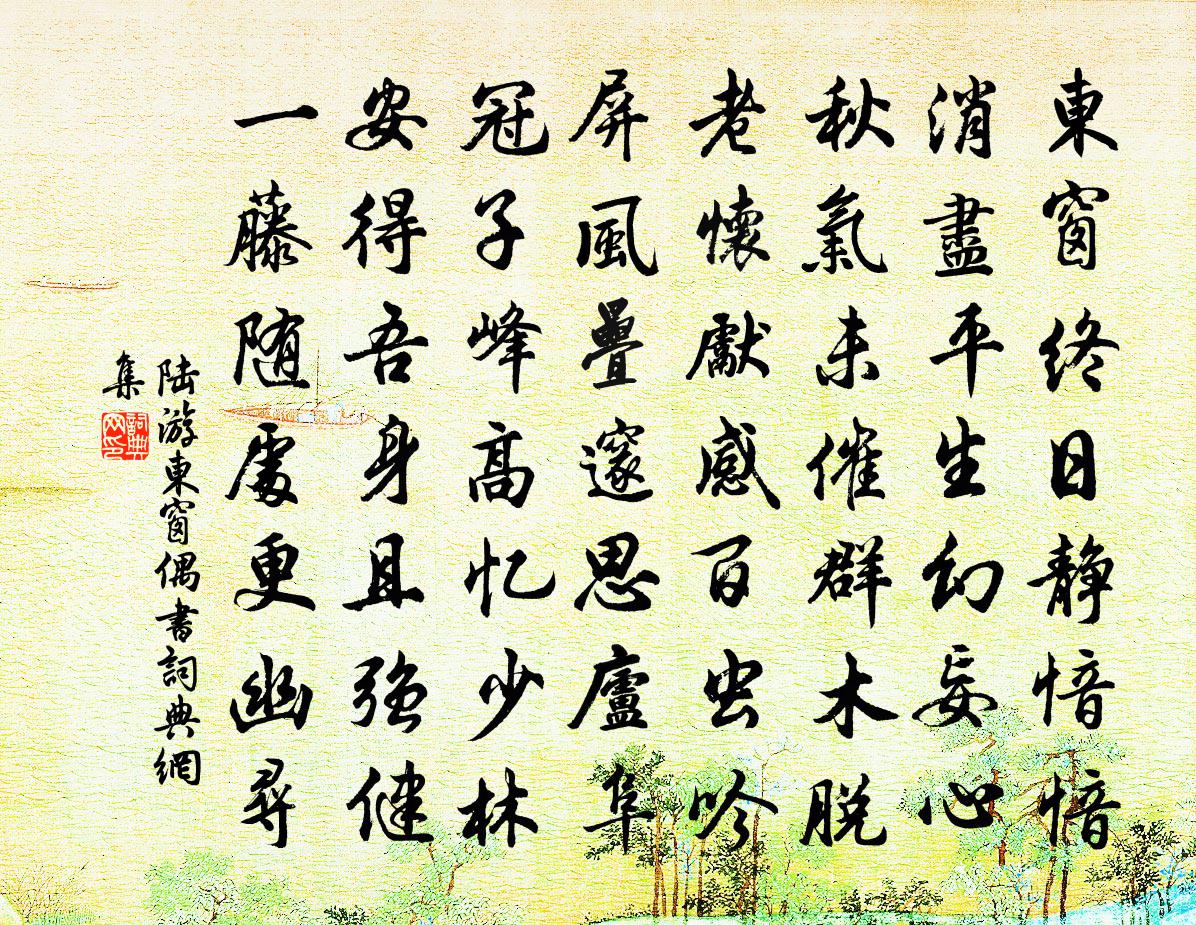 東窗終日静愔愔
消盡平生幻妄心
秋氣未催群木脫
老懷獻感百虫吟
屏風疊邃思廬阜
冠子峰高忆少林
安得吾身且强健
一藤随處更幽尋
陸游東窗偶書詞典網
集
詞典网印